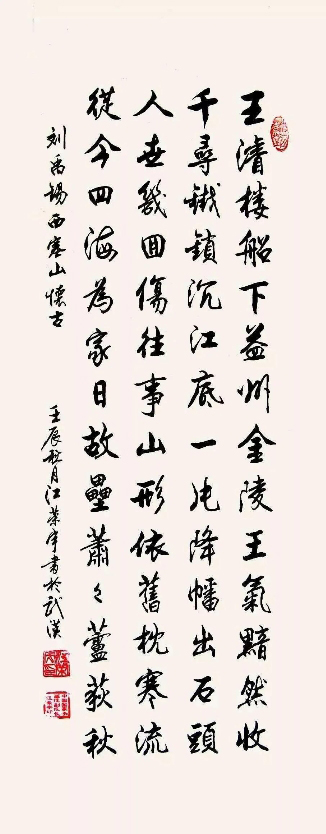 王濬楼船下益州金陵王氣黯然收
千尋鐵鎖沉江底一片降幡出石頭
人世幾回傷往事山形依舊枕寒流
從今四海為家日故壘蕭々蘆荻秋
刘禹锡西塞山懷古
壬辰秋月江榮宇書於武漢